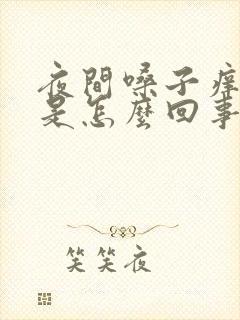 夜間嗓子痒
是怎麼回事
笑笑夜